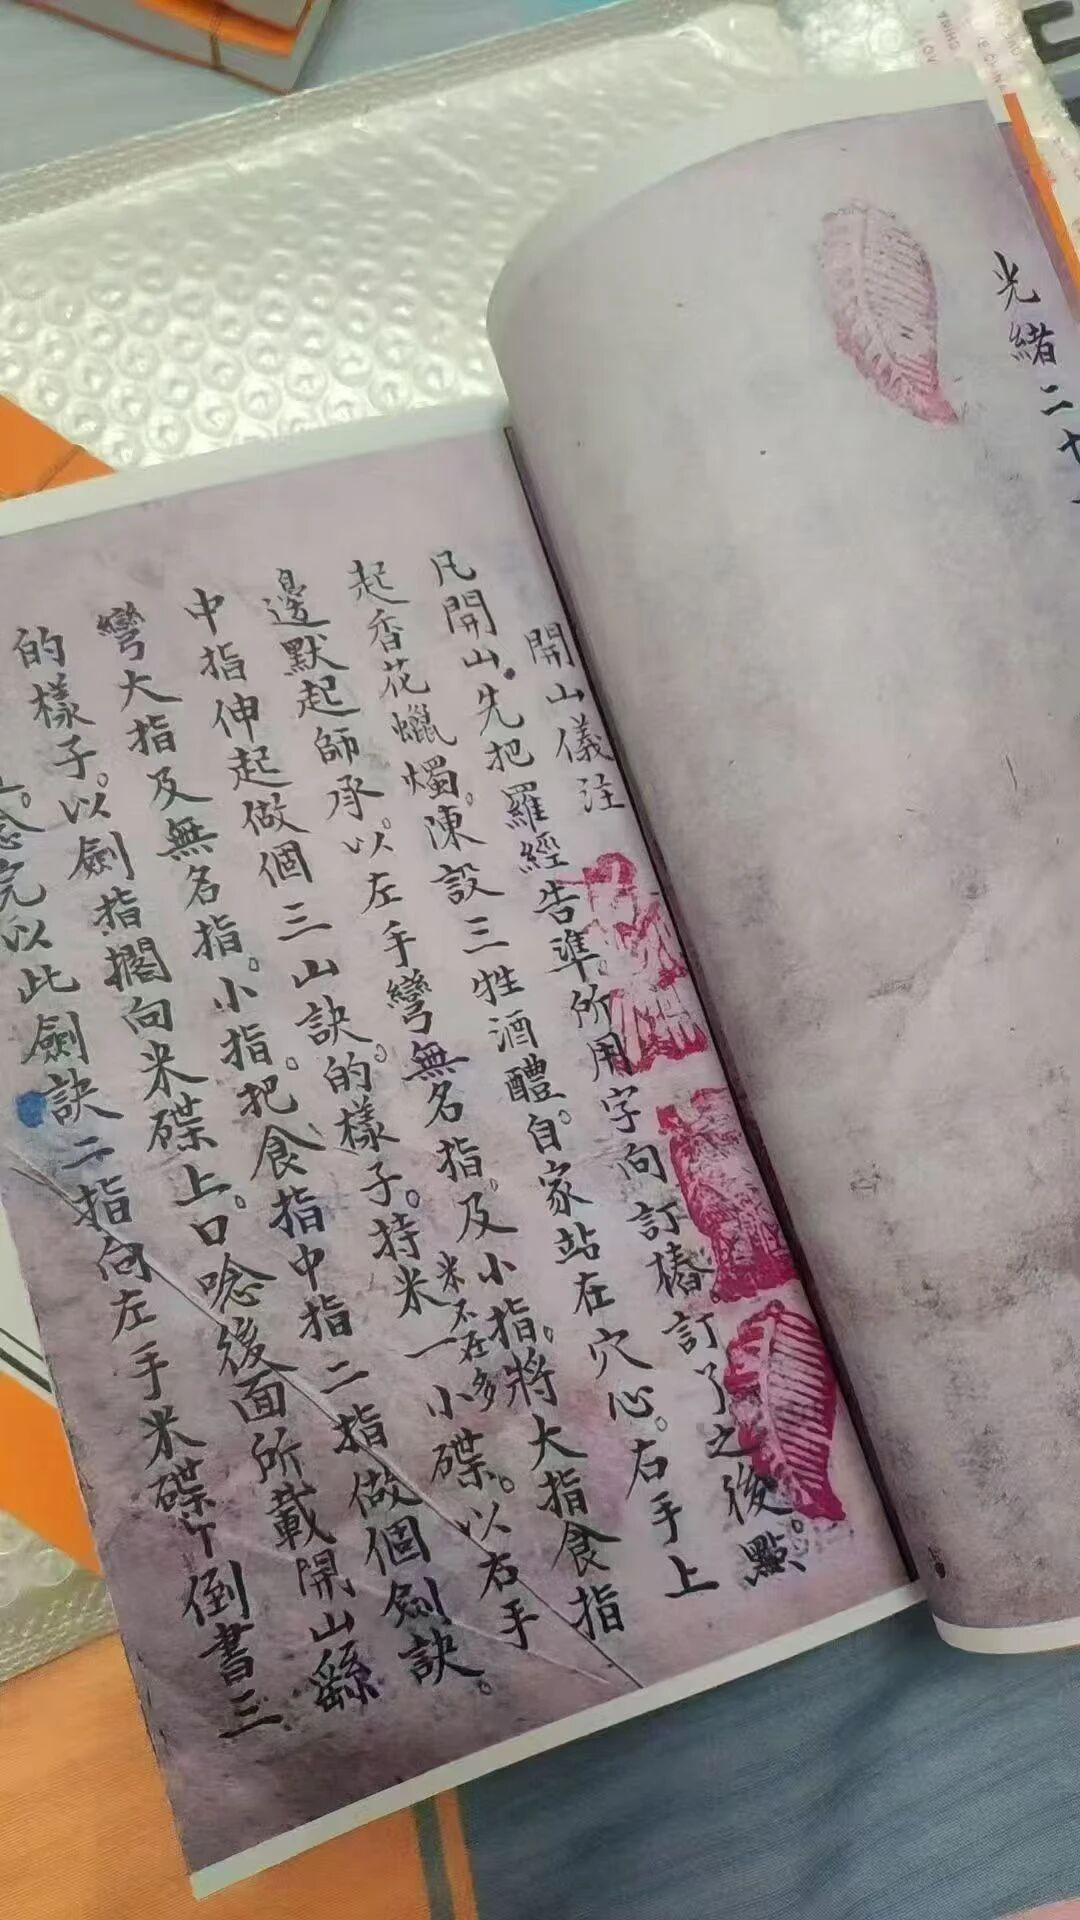 光緒二十
開山儀注
凡開山。先把羅經告準。所用字向訂樁。訂了之後。點
起香花蠟燭。陳設三牲酒醴。自家站在穴心。右手上
邊默起師承。以左手彎無名指。及小指。將大指食指
中指伸起做個三山訣。的樣子。持米一小碟。米不在多以右手
彎大指及無名指。小指。把食指中指二指做個劍訣。
的樣子。以劍指擱向米碟上。口唸後面所載開山繇
完以此劍訣二指向左手米碟中倒書三